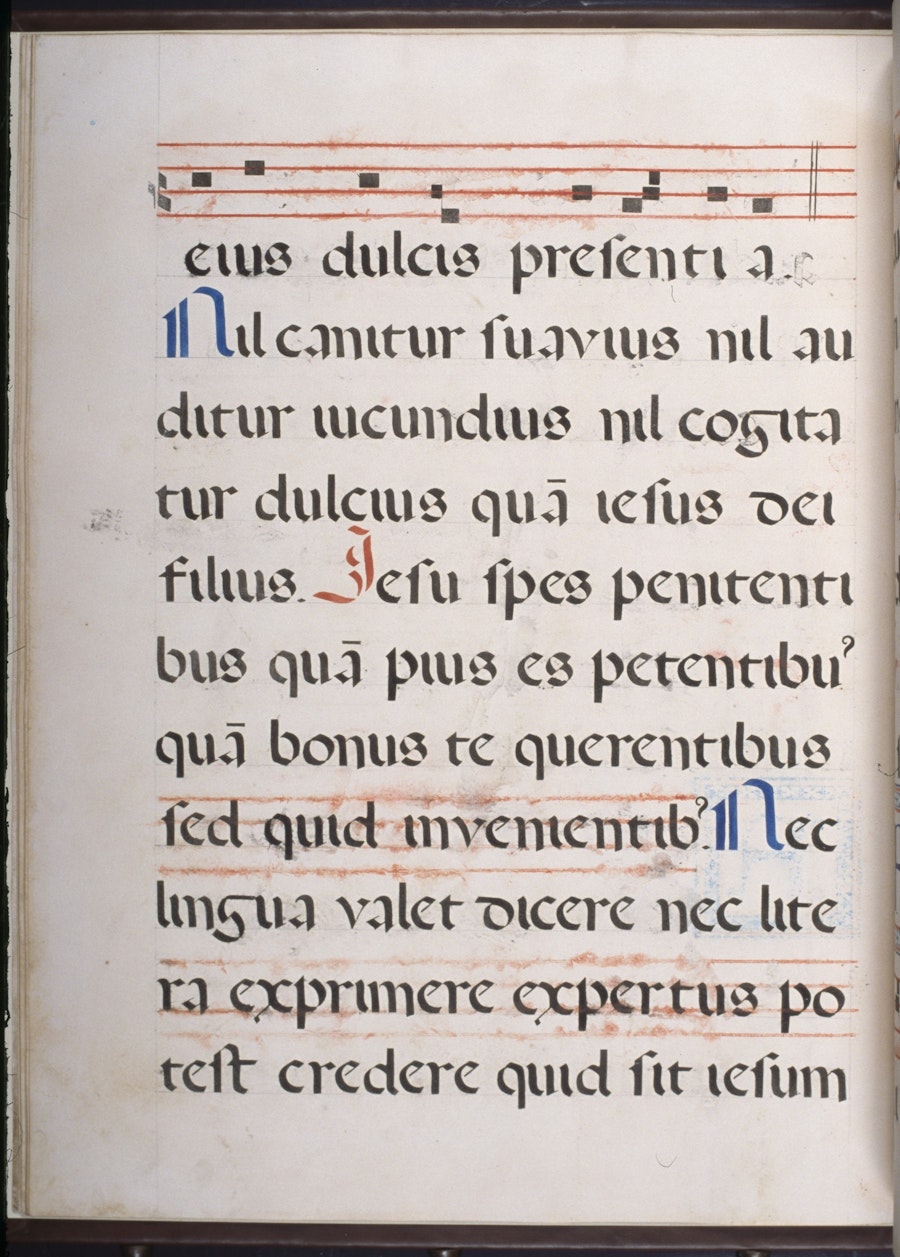 eius dulcis preſenti a.
Nil canitur ſuavius nil au
ditur iucundius nil cogita
tur dulcius quā ieſus dei
filius. Jeſu ſpes penitenti
bus quā pius es petentibuꝰ
quā bonus te querentibus
ſed quid invenientibꝰ. Nec
lingua valet dicere nec lite
ra exprimere expertus po
teſt credere quid ſit ieſum